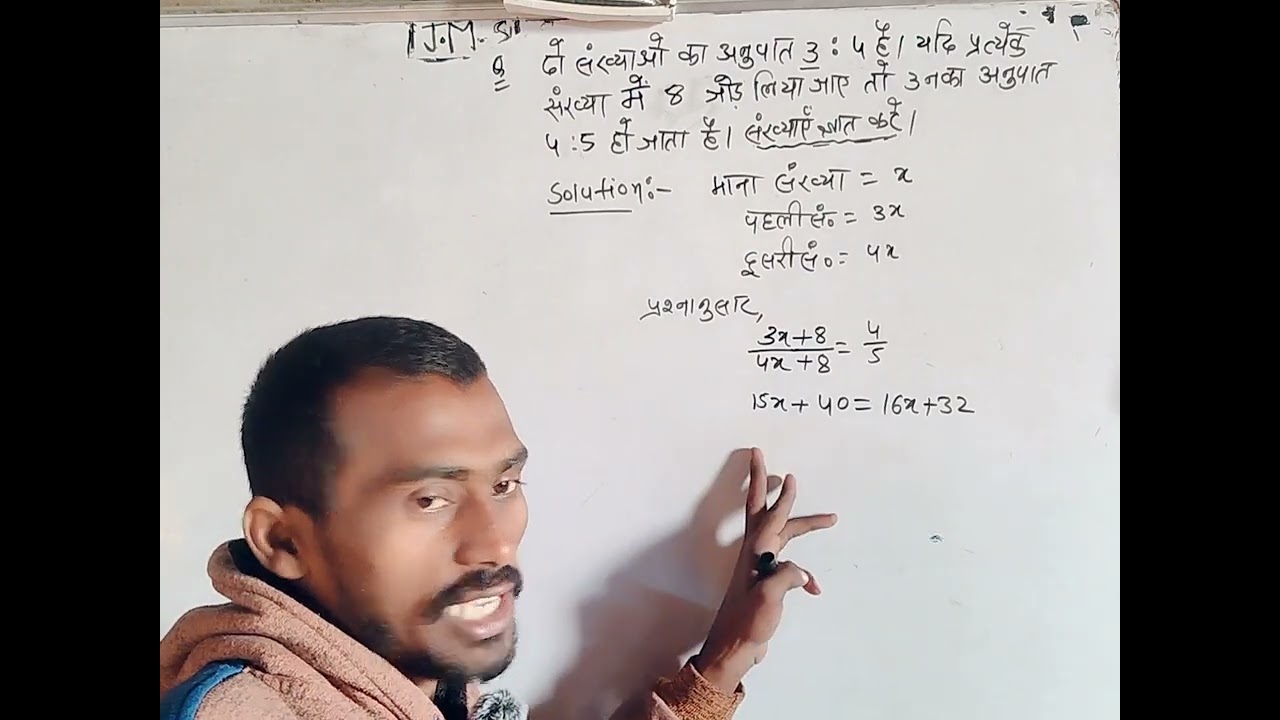 J.M. S
Q दो संख्याओ का अनुपात 3 : 4 है। यदि प्रत्येक
संख्या में 8 जोड़ लिया जाए तो उनका अनुपात
4 : 5 हो जाता है। संख्याएँ ज्ञात करें।
Solution:- माना संख्या = x
पहली सं० = 3x
दूसरी सं० = 4x
प्रश्नानुसार,
3x+8/4x+8 = 4/5
15x + 40 = 16x+32